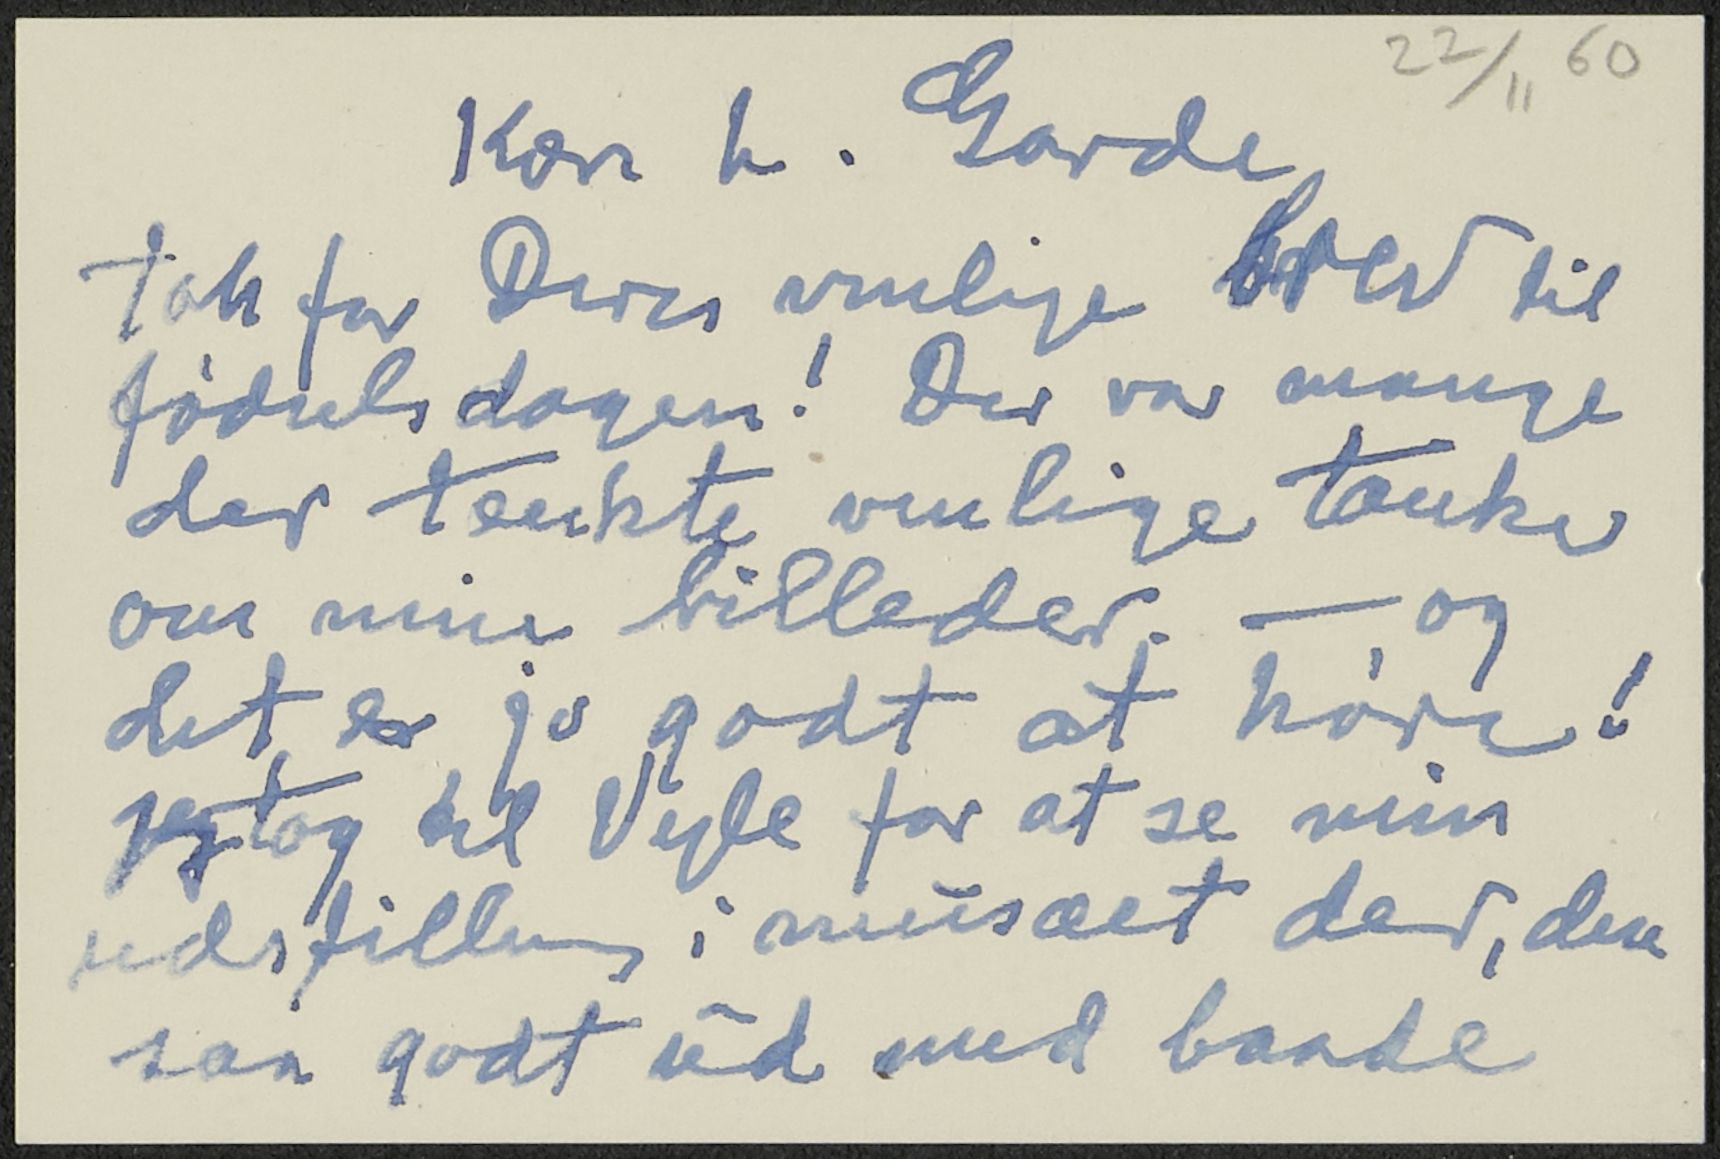 22/11 60
Kære h. Garde
Tak for Deres venlige brev til
fødselsdagen! Der var mange
der tenkte venlige tanker
om mine billeder. — og
det er jo godt at høre!
jeg tog til Vejle for at se min
udstilling i musæet der, den
saa godt ud med baade